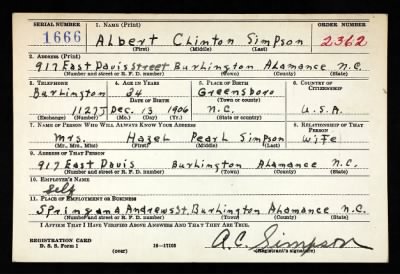 SERIAL NUMBER 1. NAME (Print) ORDER NUMBER
1666 Albert Clinton Simpson 2362
(First) (Middle) (Last)
2. ADDRESS (Print)
917 East Davis Street Burlington Alamance N.C.
(Number and street or R. F. D. number) (Town) (County) (State)
3. TELEPHONE 4. AGE IN YEARS 5. PLACE OF BIRTH 6. COUNTRY OF CITIZENSHIP
Burlington 34 Greensboro
DATE OF BIRTH (Town or county)
1127J Dec. 13 1906 N.C. U.S.A.
(Exchange) (Number) (Mo.) (Day) (Yr.) (State or country)
7. NAME OF PERSON WHO WILL ALWAYS KNOW YOUR ADDRESS 8. RELATIONSHIP OF THAT PERSON
Mrs. Hazel Pearl Simpson Wife
(Mr., Mrs., Miss) (First) (Middle) (Last)
9. ADDRESS OF THAT PERSON
917 East Davis Burlington Alamance N.C.
(Number and street or R. F. D. number) (Town) (County) (State)
10. EMPLOYER'S NAME
Self
11. PLACE OF EMPLOYMENT OR BUSINESS
Spring and Andrews St. Burlington Alamance N.C.
(Number and street or R. F. D. number) (Town) (County) (State)
I AFFIRM THAT I HAVE VERIFIED ABOVE ANSWERS AND THAT THEY ARE TRUE.
REGISTRATION CARD
D. S. S. Form 1 (over) 16—17105 A.C. Simpson
(Registrant's signature)